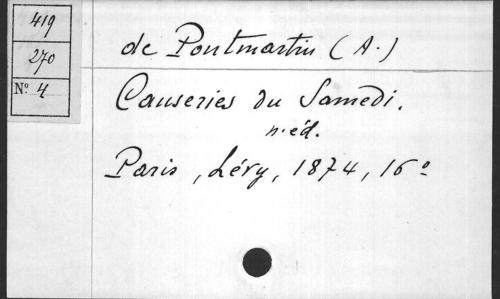 419
270
Nº 4
de Pontmartin (A.)
Causeries du Samedi.
n. éd.
Paris, Lévy, 1874, 16º